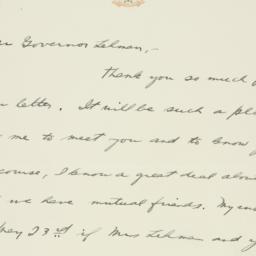 Governor Lehman,-
Thank you so much
letter. It will be such a
me to meet you and to know
course, I know a great deal
we have mutual friends. My
May 23rd if Mrs Lehman and